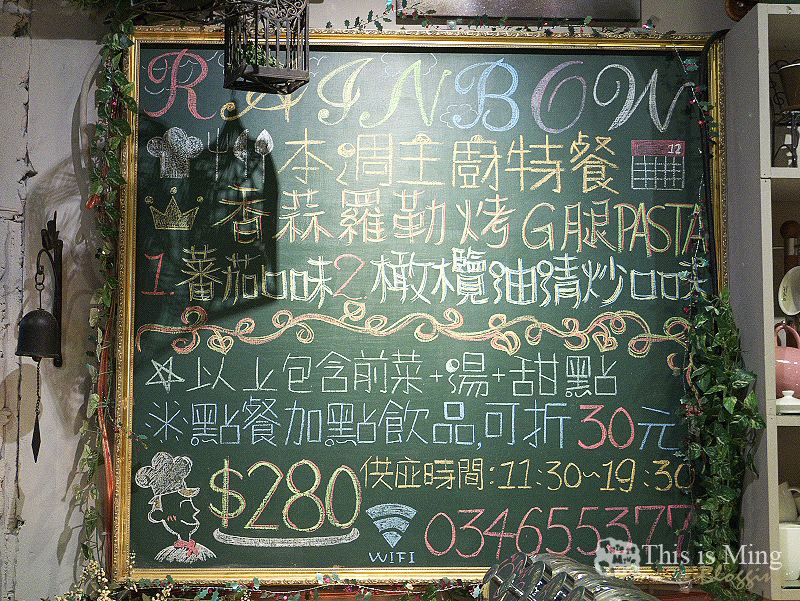 RAINBOW
本週主廚特餐
12
香蒜羅勒烤G腿PASTA
1.蕃茄口味2橄欖油清炒口味
以上包含前菜+湯+甜點
※點餐加點飲品,可折30元
$280
供应時間:11:30~19:30
WIFI
034655377
This is Ming